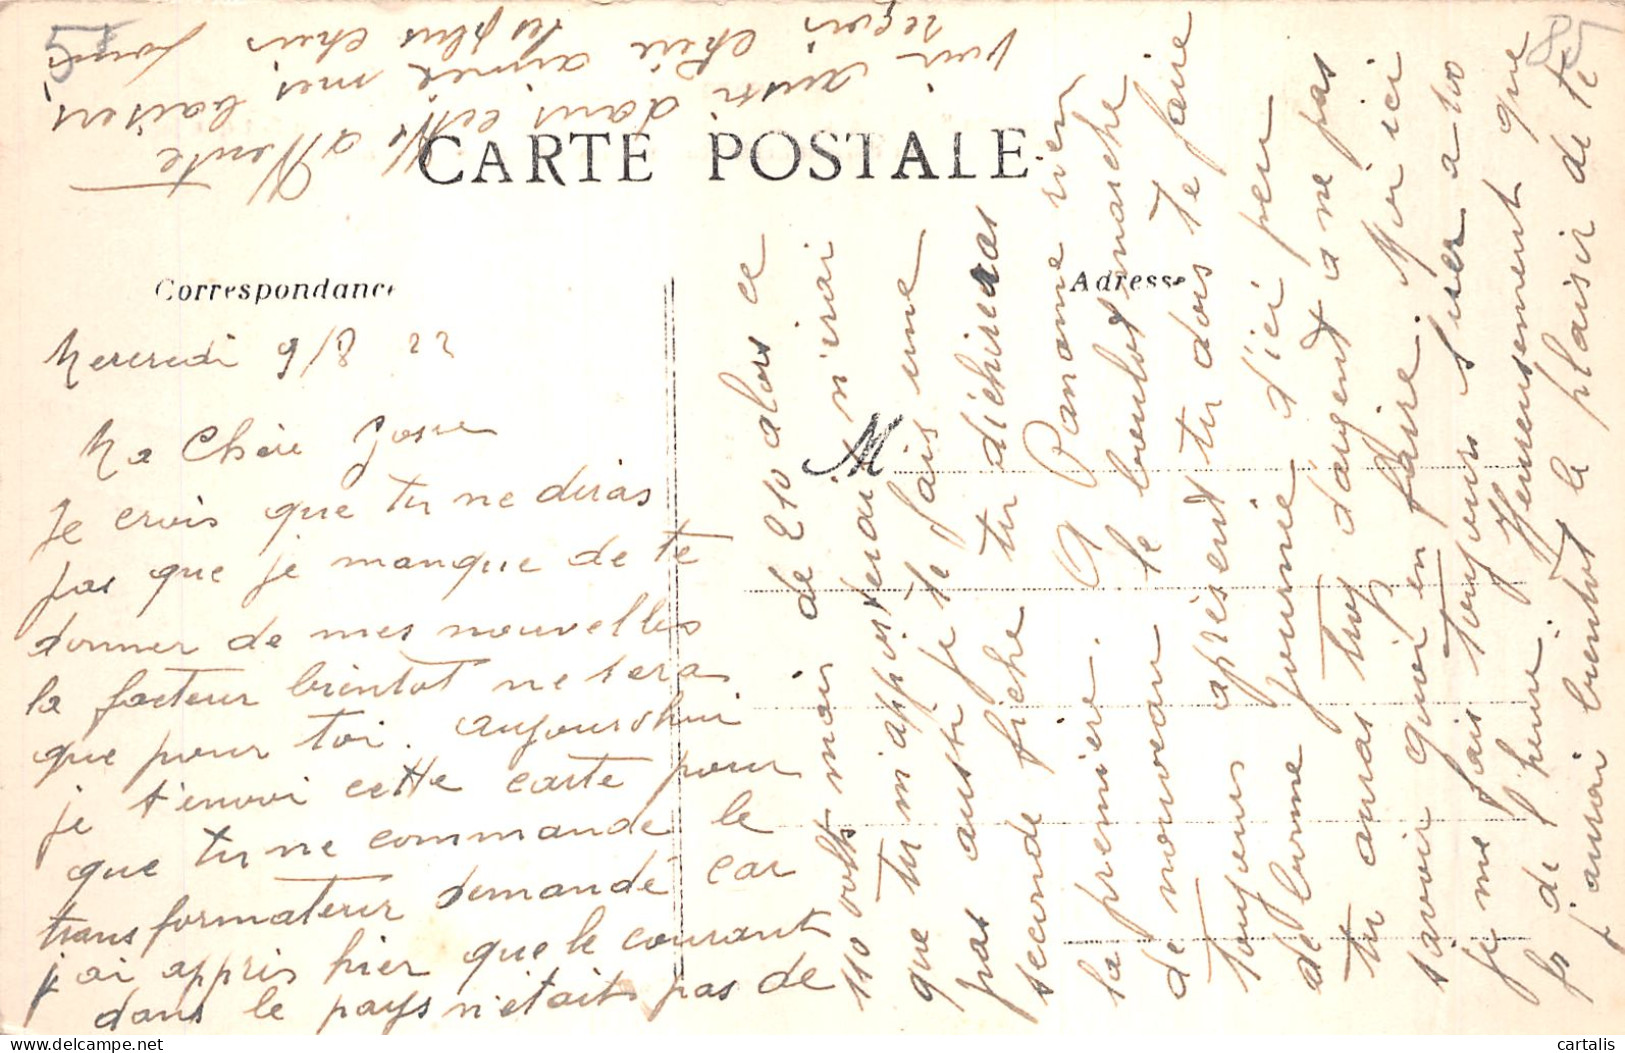 CARTE POSTALE
Correspondance
Adresse
M
Mercredi 9/8 22
Ma Chère
Je crois que tu ne diras
pas que je manque de te
donner de mes nouvelles
la facteur bientot ne sera
que pour toi. aujourdhui
je t'envoi cette carte pour
que tu ne commande le
transformateur demandé car
j'ai appris hier que le courant
dans le pays n'etait pas de
110 volts mais de 210 alors ce
que tu m'apporterai n'irai
pas aussi je te fais une
seconde fiche tu dichireras
la premiere. A Paname rien
de nouveau le boulot marche
toujours apresent tu dois te faire
de bonne journée d'ici peu
tu auras trop d'argent a ne pas
savoir quoi en faire. Moi ici
je me fais toujours suer a 100
fr de l'heure. Heureusement que
j'aurai bientot le plaisir de te
voir aussi dans cette attente
reçois chère aimée mes baisers
les plus chers